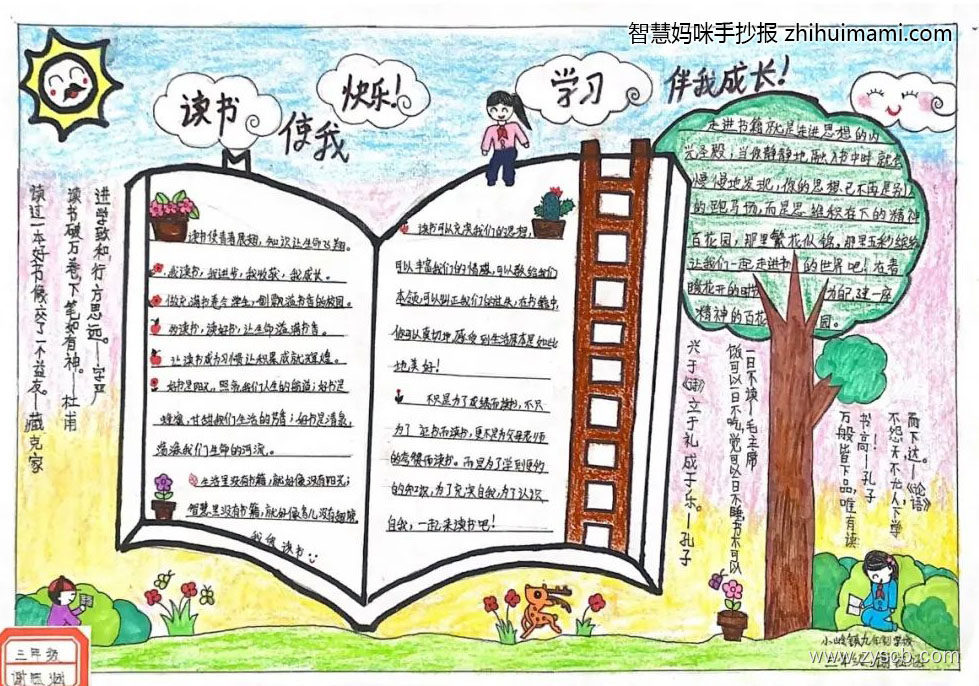 智慧妈咪手抄报 zhihuimami.com
读书
使我
快乐！
学习
伴我成长！
进学致和，行方思远。—字严
读书破万卷，下笔如有神。—杜甫
读过一本好书，像交了一个益友。—臧克家
读书使青春展翅，知识让生命飞翔。
我读书，我进步，我收获，我成长。
做充满书卷气学生，创飘满书香的校园。
多读书，读好书，让生命溢满书香。
让读书成为习惯让积累成就辉煌。
好书是阳光，照亮我们人生的前途；好书是
蜂蜜，甘甜我们生活的芳香；好书是清泉，
滋润我们生命的河流。
生活里没有书籍，就好像没有阳光；
智慧里没有书籍，就好像鸟儿没有翅膀
我 读书
读书可以充实我们的思想，
可以丰富我们的情感，可以教给我们
本领，可以纠正我们的过失，在书籍中，
你可以真切地感受到生活原本是如此
地美好！
不只是为了成绩而读书，不只
为了 书而读书，更不是为父母老师
的夸赞而读书。而是为了学到更多
的知识，为了充实自我，为了认识
自我，一起来读书吧！
走进书籍就是走进思想的内
殿，当你静静地融入书中时就会
慢慢地发现，你的思想已不再是别人
的跑马场，而是思维积存下的精神
百花园，那里繁花似锦，那里五彩缤纷
让我们一起走进书的世界吧！在春
暖花开的时 为自己建一座
精神的百花 园。
兴于《诗》立于礼，成于乐。—孔子
一日不读—毛主席
饭可以一日不吃，觉可以一日不睡，书不可以
而下达。—《论语》
不怨天，不尤人，下学
书高！—孔子
万般皆下品，唯有读
小岭镇九年制学校
三年级
www.zyscb.com